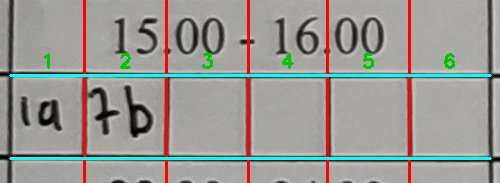 15.00 - 16.00
1 2 3 4 5 6
1a 7b